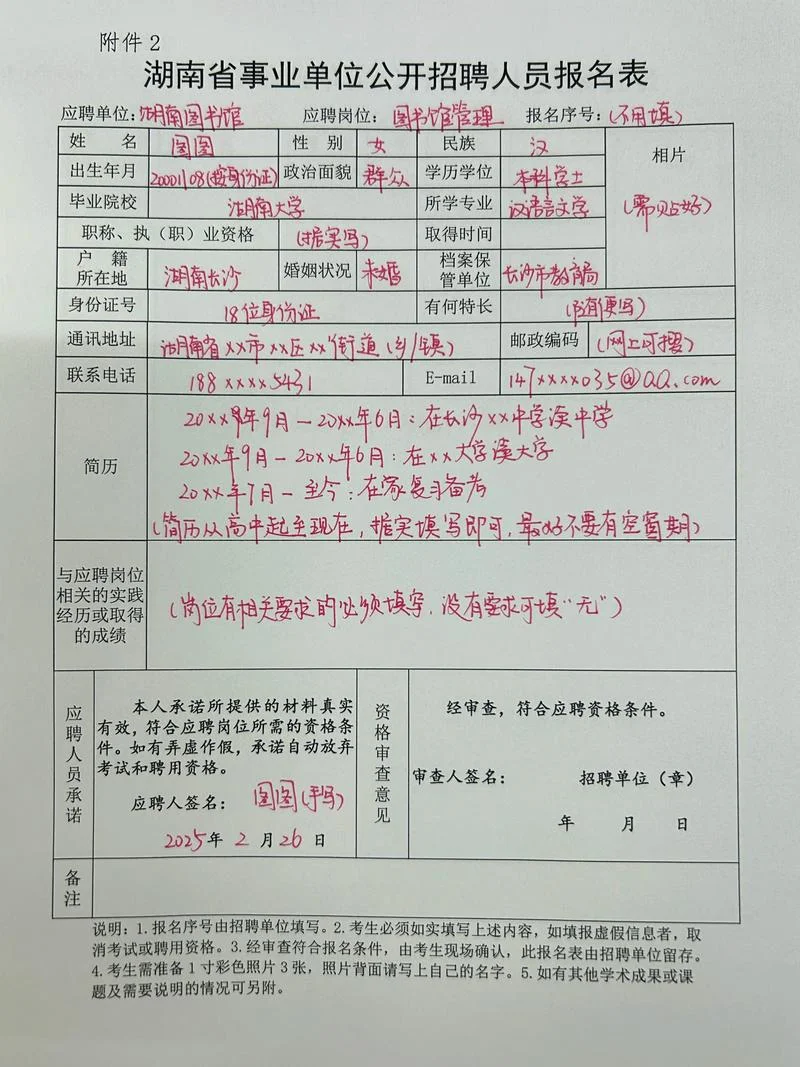 附件2
湖南省事业单位公开招聘人员报名表
应聘单位:湖南图书馆 应聘岗位:图书馆管理 报名序号:(不用填)
姓 名 图图 性 别 女 民族 汉 相片
(需贴好)
出生年月 20001108(按身份证) 政治面貌 群众 学历学位 本科学士
毕业院校 湖南大学 所学专业 汉语言文学
职称、执(职)业资格 (据实写) 取得时间
户 籍
所在地 湖南长沙 婚姻状况 未婚 档案保
管单位 长沙市教育局
身份证号 18位身份证 有何特长 (没有便写)
通讯地址 湖南省xx市xx区xx街道(乡/镇) 邮政编码 (网上可搜)
联系电话 188xxxx5431 E-mail 147xxxx035@QQ.com
简历
20xx年9月—20xx年6月:在长沙xx中学读中学
20xx年9月—20xx年6月:在xx大学读大学
20xx年7月—至今:在家复习备考
(简历从高中起至现在,据实填写即可,最好不要有空窗期)
与应聘岗位
相关的实践
经历或取得
的成绩
(岗位有相关要求的必须填写,没有要求可填"无")
应聘人员承诺
本人承诺所提供的材料真实
有效,符合应聘岗位所需的资格条
件。如有弄虚作假,承诺自动放弃
考试和聘用资格。
应聘人签名: 图图(手写)
2025年 2 月 26 日
资格审查意见
经审查,符合应聘资格条件。
审查人签名: 招聘单位(章)
年 月 日
备注
说明:1.报名序号由招聘单位填写。2.考生必须如实填写上述内容,如填报虚假信息者,取
消考试或聘用资格。3.经审查符合报名条件,由考生现场确认,此报名表由招聘单位留存。
4.考生需准备1寸彩色照片3张,照片背面请写上自己的名字。5.如有其他学术成果或课
题及需要说明的情况可另附。